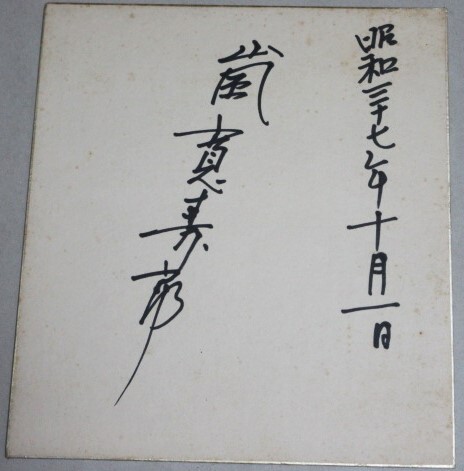 昭和三十七年十月一日
嵐寛寿郎